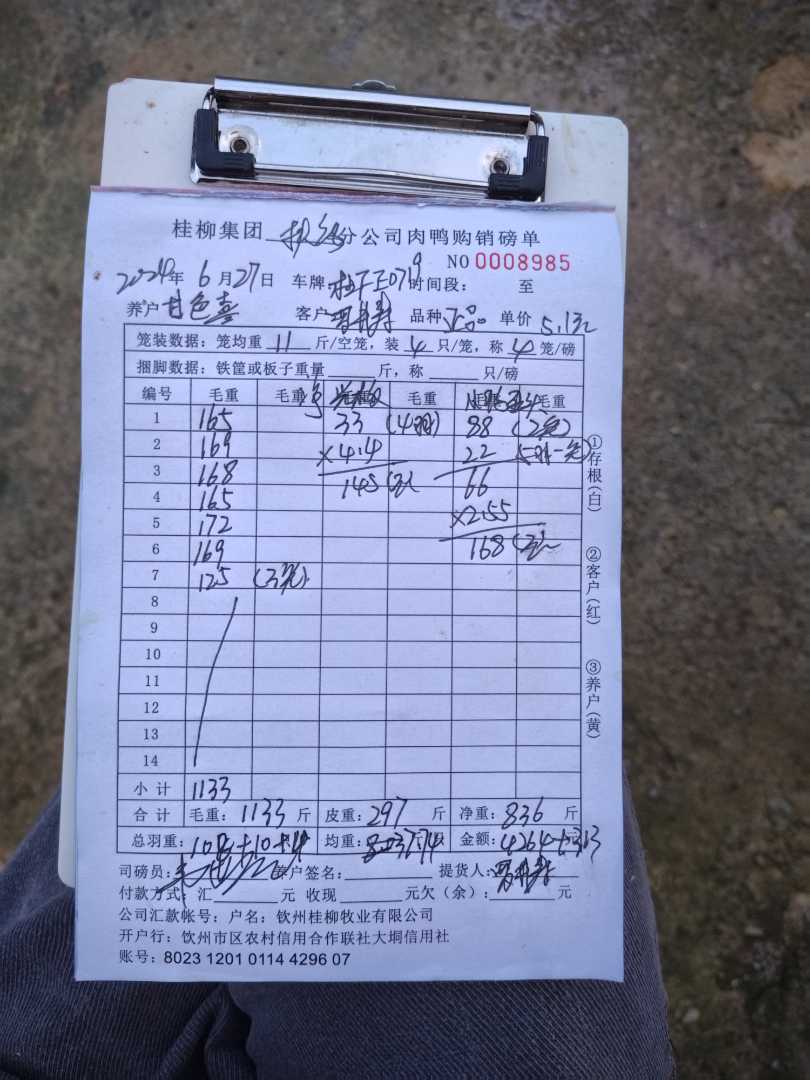 桂柳集团 分公司肉鸭购销磅单
NO 0008985
2024年 6月27日 车牌 0719 时间段: 至
养户 甘色喜 客户 品种 正品 单价 5.1元
笼装数据:笼均重 11 斤/空笼,装 4 只/笼,称 4 笼/磅
捆脚数据:铁筐或板子重量 斤,称 只/磅
编号 毛重 毛重 毛重 毛重 毛重 毛重
1 165 33 (4羽) 88 (2笼)
2 169 ×4.4 22
3 168 145(元) 66
4 165
5 172 ×2.55
6 169 168(元)
7 125 (3笼)
8
9
10
11
12
13
14
小计 1133
合计 毛重:1133 斤 皮重:297 斤 净重:836 斤
总羽重: 均重: 金额:4264+313
司磅员: 养户签名: 提货人:
付款方式:汇 元 收现 元欠(余): 元
公司汇款帐号:户名:钦州桂柳牧业有限公司
开户行:钦州市区农村信用合作联社大垌信用社
账号:8023 1201 0114 4296 07
①存根(白)
②客户(红)
③养户(黄)